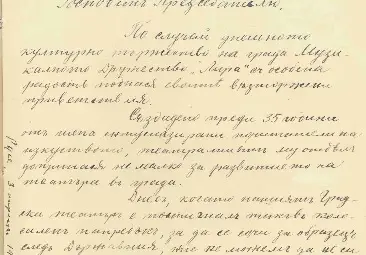 Господинъ Председателю,
По случай днешното
културно тържество на града Музи-
калното Дружество „Лира" съ особена
радость поднася своитѣ възторжени
приветствия.
Създадено преди 35 години
отъ шепа ентусиазирани почитатели на
изкуството, театралниятъ му отдѣлъ
допринася не малко за развитието на
театъра въ града.
Днесъ, когато нашиятъ Град-
ски театъръ е постигналъ такъвъ
напредъкъ, за да се сочи за образецъ
следъ Държавния, ние не можемъ да не си
Русе, 3 априлий 19